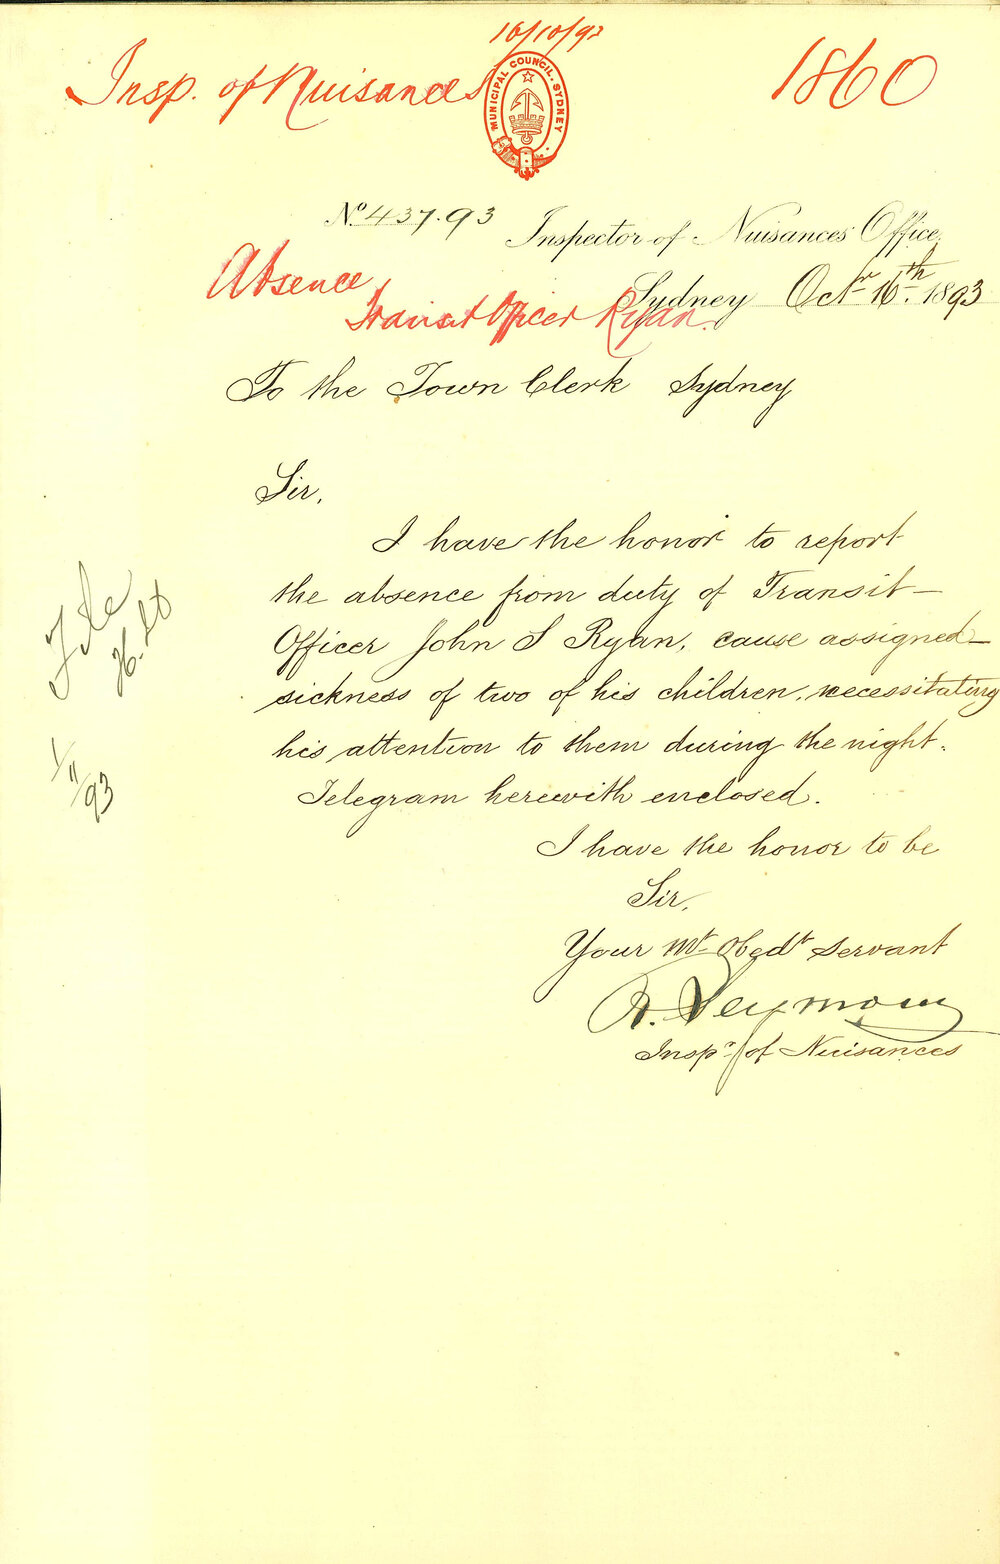 16/10/93
Insp. of Nuisances
1860
MUNICIPAL COUNCIL. SYDNEY
No. 437.93
Inspector of Nuisances Office,
Absence
Sydney Octr 16th. 1893
Transit Officer Ryan.
To the Town Clerk Sydney
Sir,
I have the honor to report
the absence from duty of Transit-
Officer John S Ryan, cause assigned-
sickness of two of his children, necessitating
his attention to them during the night.
Telegram herewith enclosed.
I have the honor to be
Sir,
Your Mt. Obedt servant
R. Seymour
Inspr of Nuisances
File
1/11/93